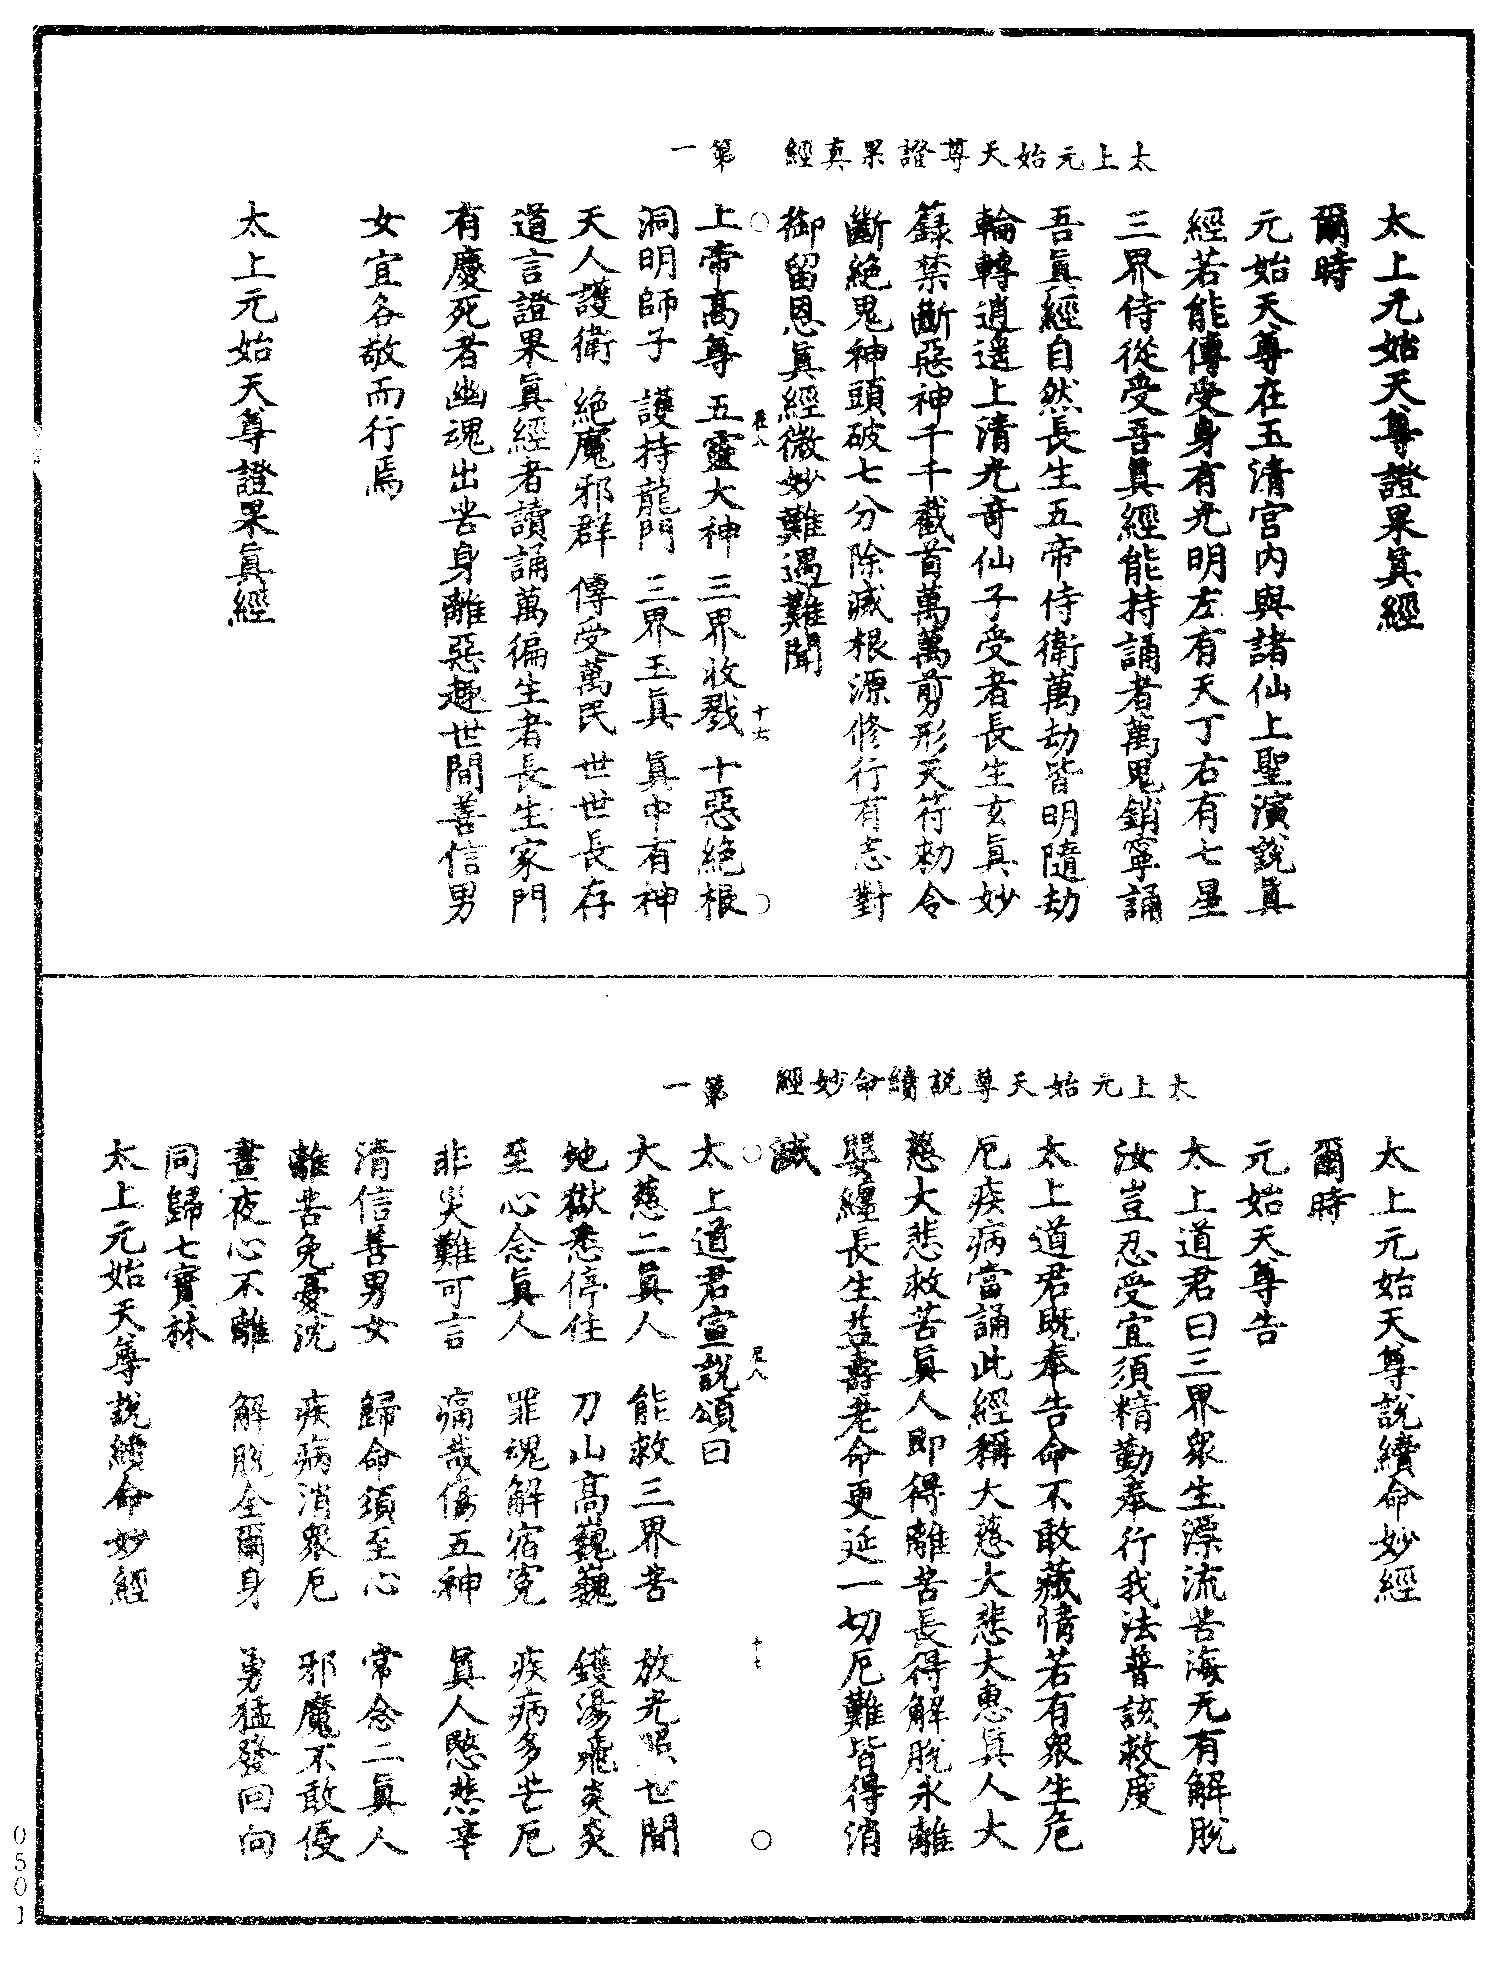 太上元始天尊證果真經　第一
太上元始天尊證果眞經
爾時
元始天尊在玉清宮内與諸仙上聖演說眞
經若能傳受身有光明左有天丁右有七星
三界侍從受吾眞經能持誦者萬鬼銷寜誦
吾眞經自然長生五帝侍衛萬劫皆明隨劫
輪轉逍遥上清光音仙子受者長生玄眞妙
籙禁斷惡神千千截首萬萬剪形天符勑令
斷絶鬼神頭破七分除滅根源修行有志對
御留恩眞經微妙難遇難聞
上帝高尊　五靈大神　三界收戮　十惡絶根
洞明師子　護持龍門　三界玉眞　眞中有神
天人護衛　絶魔邪群　傳受萬民　世世長存
道言證果眞經者讀誦萬徧生者長生家門
有慶死者幽魂出苦身離惡趣世間善信男
女宜各敬而行焉
太上元始天尊證果眞經
太上元始天尊說續命妙經　第一
太上元始天尊說續命妙經
爾時
元始天尊告
太上道君曰三界衆生漂流苦海无有解脫
汝豈忍受宜須精勤奉行我法普該救度
太上道君既奉告命不敢藏情若有衆生危
厄疾病當誦此經稱大慈大悲大惠眞人大
慈大悲救苦眞人即得離苦長得解脫永離
嬰纏長生益壽老命更延一切厄難皆得消
滅
太上道君宣說頌曰
大慈二眞人　能救三界苦　放光照世間
地獄悉停住　刀山高巍巍　鑊湯飛炎炎
至心念眞人　罪魂解宿寃　疾病多芒厄
非災難可言　痛哉傷五神　眞人愍悲辛
清信善男女　歸命須至心　常念二眞人
離苦免憂沈　疾病消衆厄　邪魔不敢侵
晝夜心不離　解脫全爾身　勇猛發回向
同歸七寶林
太上元始天尊說續命妙經
0501